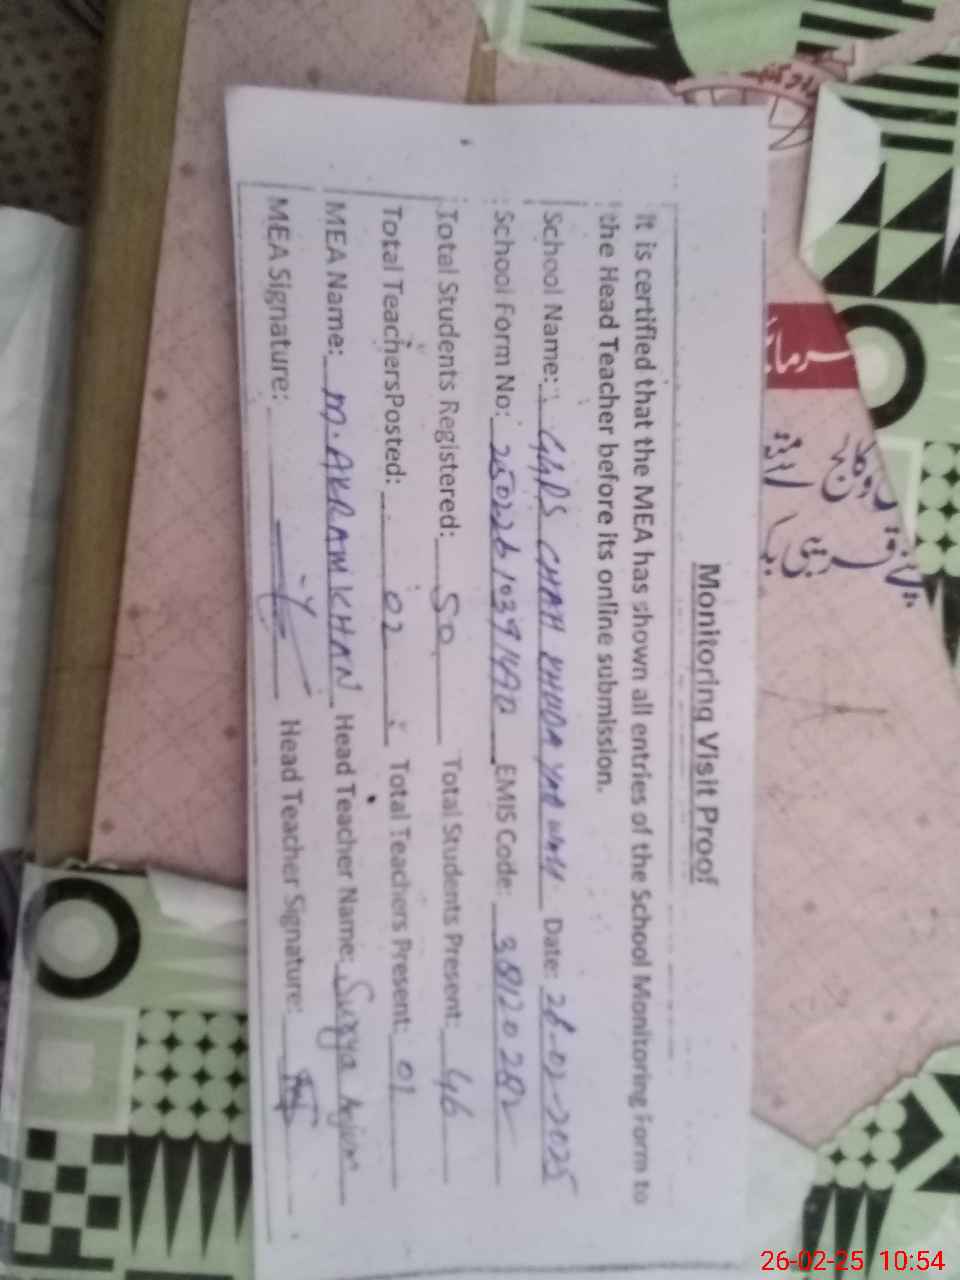 Monitoring Visit Proof
It is certified that the MEA has shown all entries of the School Monitoring Form to
the Head Teacher before its online submission.
School Name: GGPS CHAH KHUDA YAR Date: 26-02-2025
School Form No: EMIS Code:
Total Students Registered: 50 Total Students Present: 46
Total TeachersPosted: 02 Total Teachers Present: 01
MEA Name: M.AKRAM KHAN Head Teacher Name: Surya Anjum
MEA Signature: Head Teacher Signature:
26-02-25 10:54